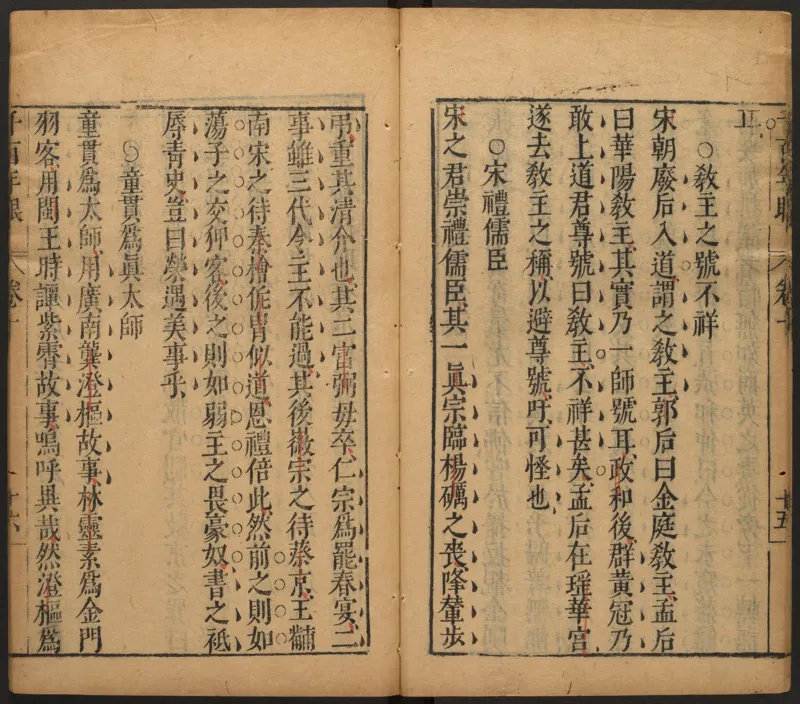 耳
○教主之號不祥
宋朝廢后入道謂之教主郭后曰金庭教主孟后
曰華陽教主其實乃一師號耳政和後群黃冠乃
敢上道君尊號曰教主不祥甚矣孟后在瑤華宮
遂去教主之稱以避尊號吁可怪也
○宋禮儒臣
宋之君崇禮儒臣其一眞宗臨楊礪之喪降輦步
弔重其清介也其二富弼母卒仁宗爲罷春宴二
事雖三代令主不能過其後徽宗之待蔡京王黼
南宋之待秦檜侂冑似道恩禮倍此然前之則如
蕩子之交狎客後之則如弱主之畏豪奴書之祗
辱青史豈曰榮遇美事乎
○童貫爲眞太師
童貫爲太師用廣南龔澄樞故事林靈素爲金門
羽客用閩王時譚紫霄故事嗚呼異哉然澄樞爲
千百年眼
卷十
十六